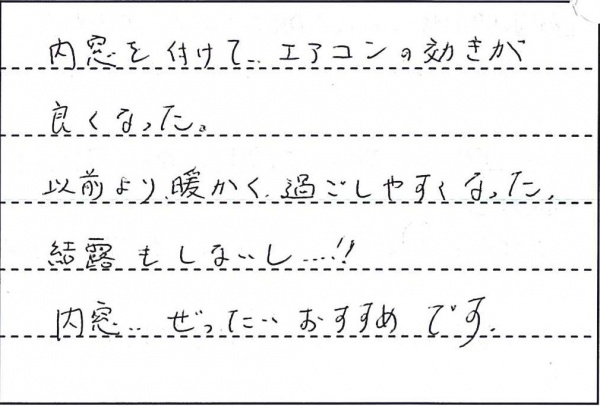 内窓を付けて、エアコンの効きが
良くなった。
以前より、暖かく、過ごしやすくなった。
結露もしないし....!!
内窓、ぜったいおすすめです。